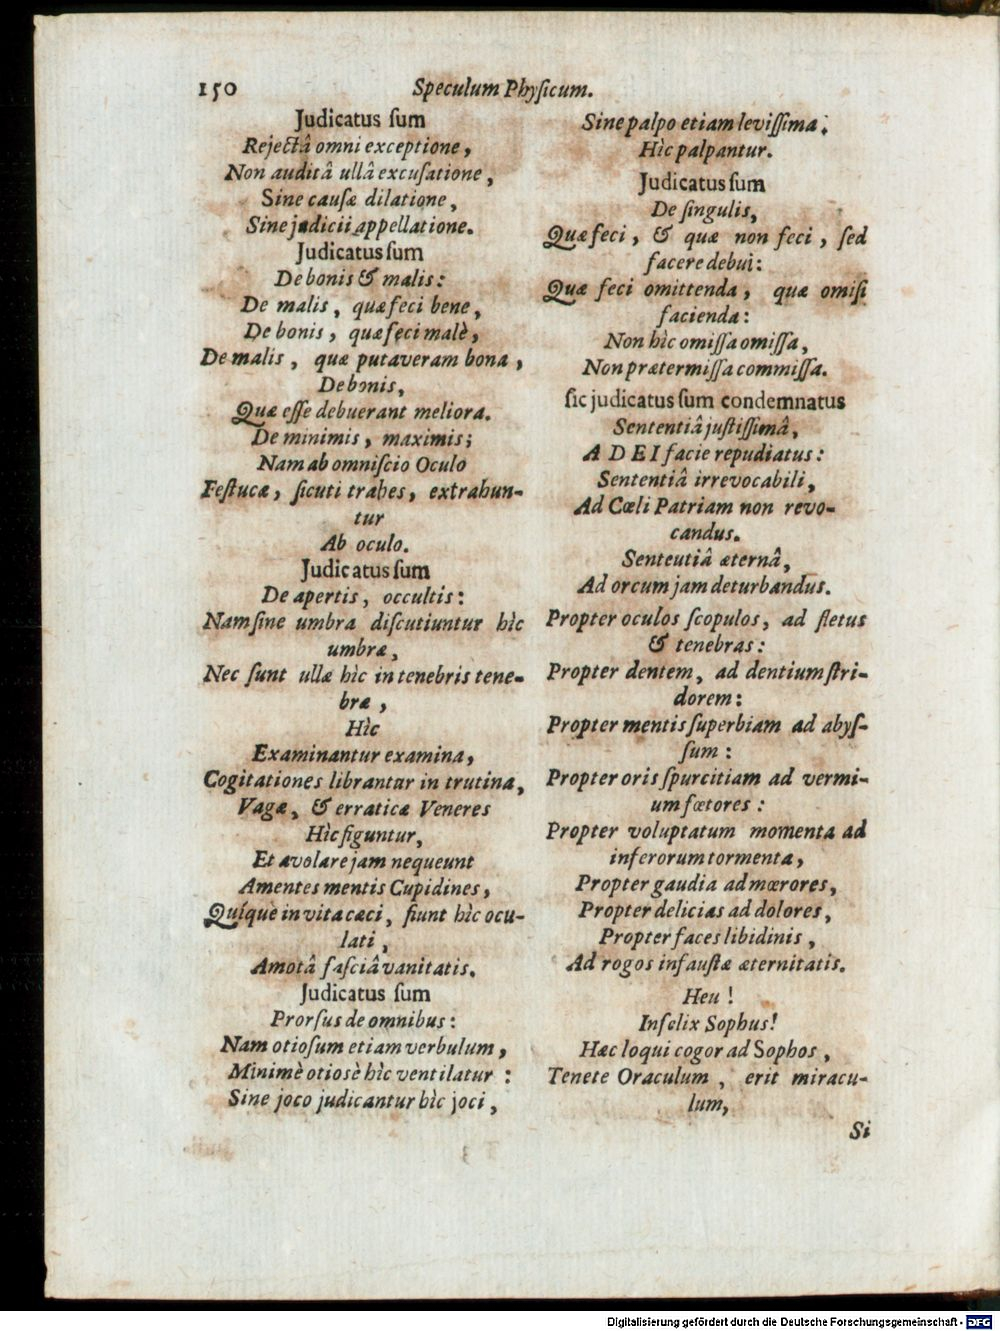 150 Speculum Physicum.
Judicatus sum
Rejectâ omni exceptione,
Non auditâ ullâ excusatione,
Sine causæ dilatione,
Sine judicii appellatione.
Judicatus sum
De bonis & malis:
De malis, quæ feci bene,
De bonis, quæ feci malè,
De malis, quæ putaveram bona,
De bonis,
Quæ esse debuerant meliora.
De minimis, maximis;
Nam ab omniscio Oculo
Festucæ, sicuti trabes, extrahun-
tur
Ab oculo.
Judicatus sum
De apertis, occultis:
Nam sine umbra discutiuntur hìc
umbræ,
Nec sunt ullæ hìc in tenebris tene-
bræ,
Hìc
Examinantur examina,
Cogitationes librantur in trutina,
Vagæ, & erraticæ Veneres
Hìc figuntur,
Et avolare jam nequeunt
Amentes mentis Cupidines,
Quíque in vita cæci, fiunt hìc ocu-
lati,
Amotâ fasciâ vanitatis.
Judicatus sum
Prorsus de omnibus:
Nam otiosum etiam verbulum,
Minimè otiosè hìc ventilatur:
Sine joco judicantur hìc joci,
Sine palpo etiam levissima;
Hìc palpantur.
Judicatus sum
De singulis,
Quæ feci, & quæ non feci, sed
facere debui:
Quæ feci omittenda, quæ omisi
facienda:
Non hìc omissa omissa,
Non prætermissa commissa.
sic judicatus sum condemnatus
Sententiâ justissimâ,
A DEI facie repudiatus:
Sententiâ irrevocabili,
Ad Cœli Patriam non revo-
candus.
Senteutiâ æternâ,
Ad orcum jam deturbandus.
Propter oculos scopulos, ad fletus
& tenebras:
Propter dentem, ad dentium stri-
dorem:
Propter mentis superbiam ad abys-
sum:
Propter oris spurcitiam ad vermi-
um fœtores:
Propter voluptatum momenta ad
inferorum tormenta,
Propter gaudia ad mœrores,
Propter delicias ad dolores,
Propter faces libidinis,
Ad rogos infaustæ æternitatis.
Heu!
Infelix Sophus!
Hæc loqui cogor ad Sophos,
Tenete Oraculum, erit miracu-
lum,
Si
Digitalisierung gefördert durch die Deutsche Forschungsgemeinschaft - DFG